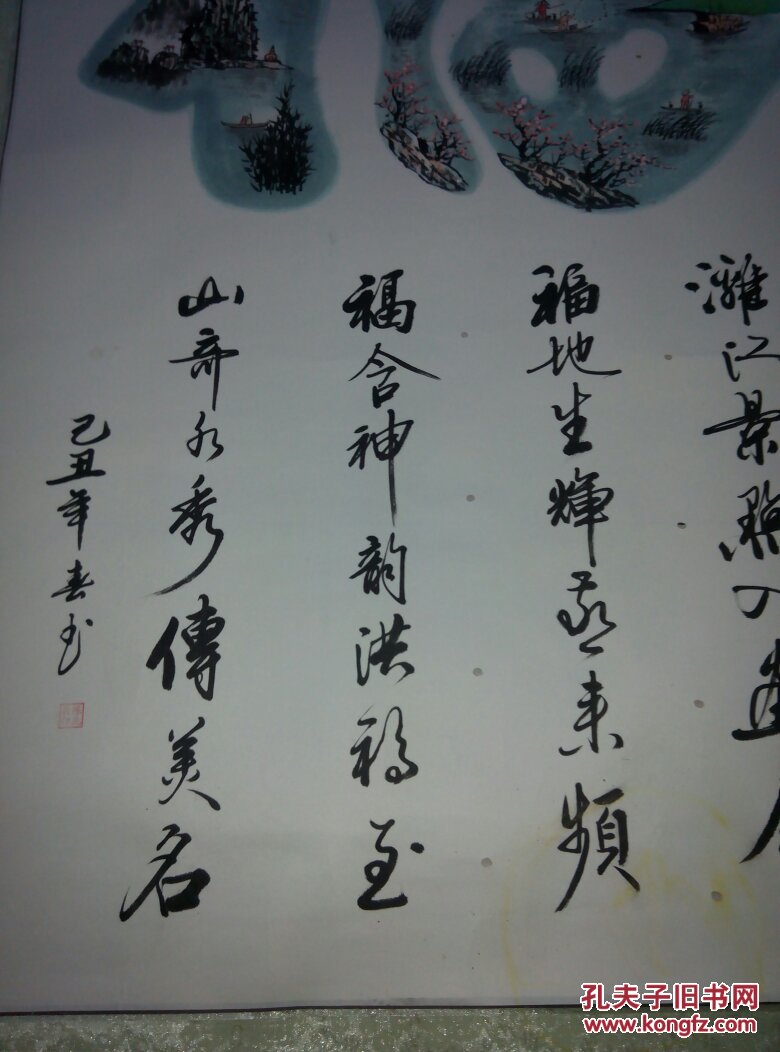 灕江景點入畫
福地生輝燕來頻
福含神韵洪福至
山奇水秀傳美名
己丑年春书
孔夫子旧书网
www.kongfz.com